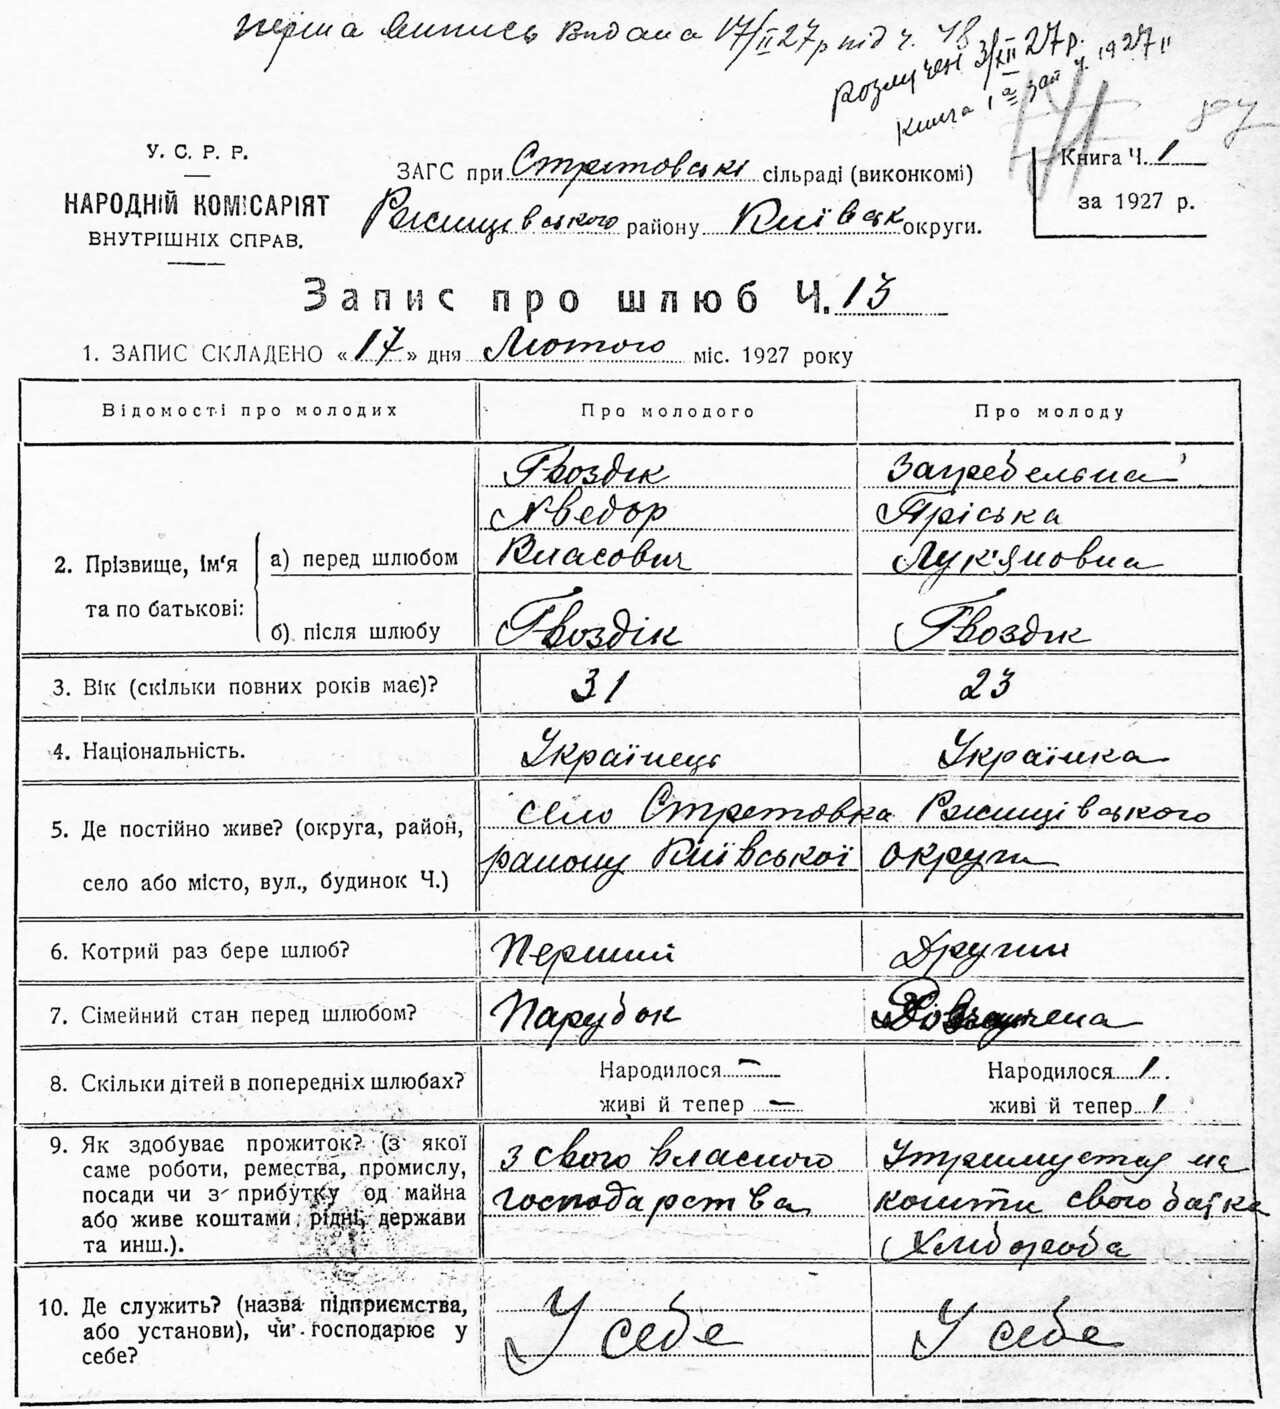 перша випись видана 17/II 27р під ч. 48
розлучені 3/XII 27р.
книга 1а зап ч. 1927
У. С. Р. Р.
НАРОДНІЙ КОМІСАРІЯТ
ВНУТРІШНІХ СПРАВ.
ЗАГС при Стретовські сільраді (виконкомі)
Ржищівського району Київськ округи.
Книга Ч. 1
за 1927 р.
Запис про шлюб Ч. 13
1. ЗАПИС СКЛАДЕНО «17» дня Лютого міс. 1927 року
Відомості про молодих Про молодого Про молоду
2. Прізвище, ім'я та по батькові:
а) перед шлюбом
Гвоздік
Хведор
Власович
Загребельна
Пріська
Лук'яновна
б) після шлюбу Гвоздік Гвоздік
3. Вік (скільки повних років має)? 31 23
4. Національність. Українець Українка
5. Де постійно живе? (округа, район,
село або місто, вул., будинок Ч.)
село Стретовка Ржищівського
району Київської округи
6. Котрий раз бере шлюб? Перший Другий
7. Сімейний стан перед шлюбом? Парубок
8. Скільки дітей в попередніх шлюбах?
Народилося – Народилося 1
живі й тепер – живі й тепер 1
9. Як здобуває прожиток? (з якої
саме роботи, ремества, промислу,
посади чи з прибутку од майна
або живе коштами рідні, держави
та инш.).
з свого власного
господарства
Утримується на
кошти свого батька
Хлібороба
10. Де служить? (назва підприємства,
або установи), чи господарює у
себе?
У себе У себе